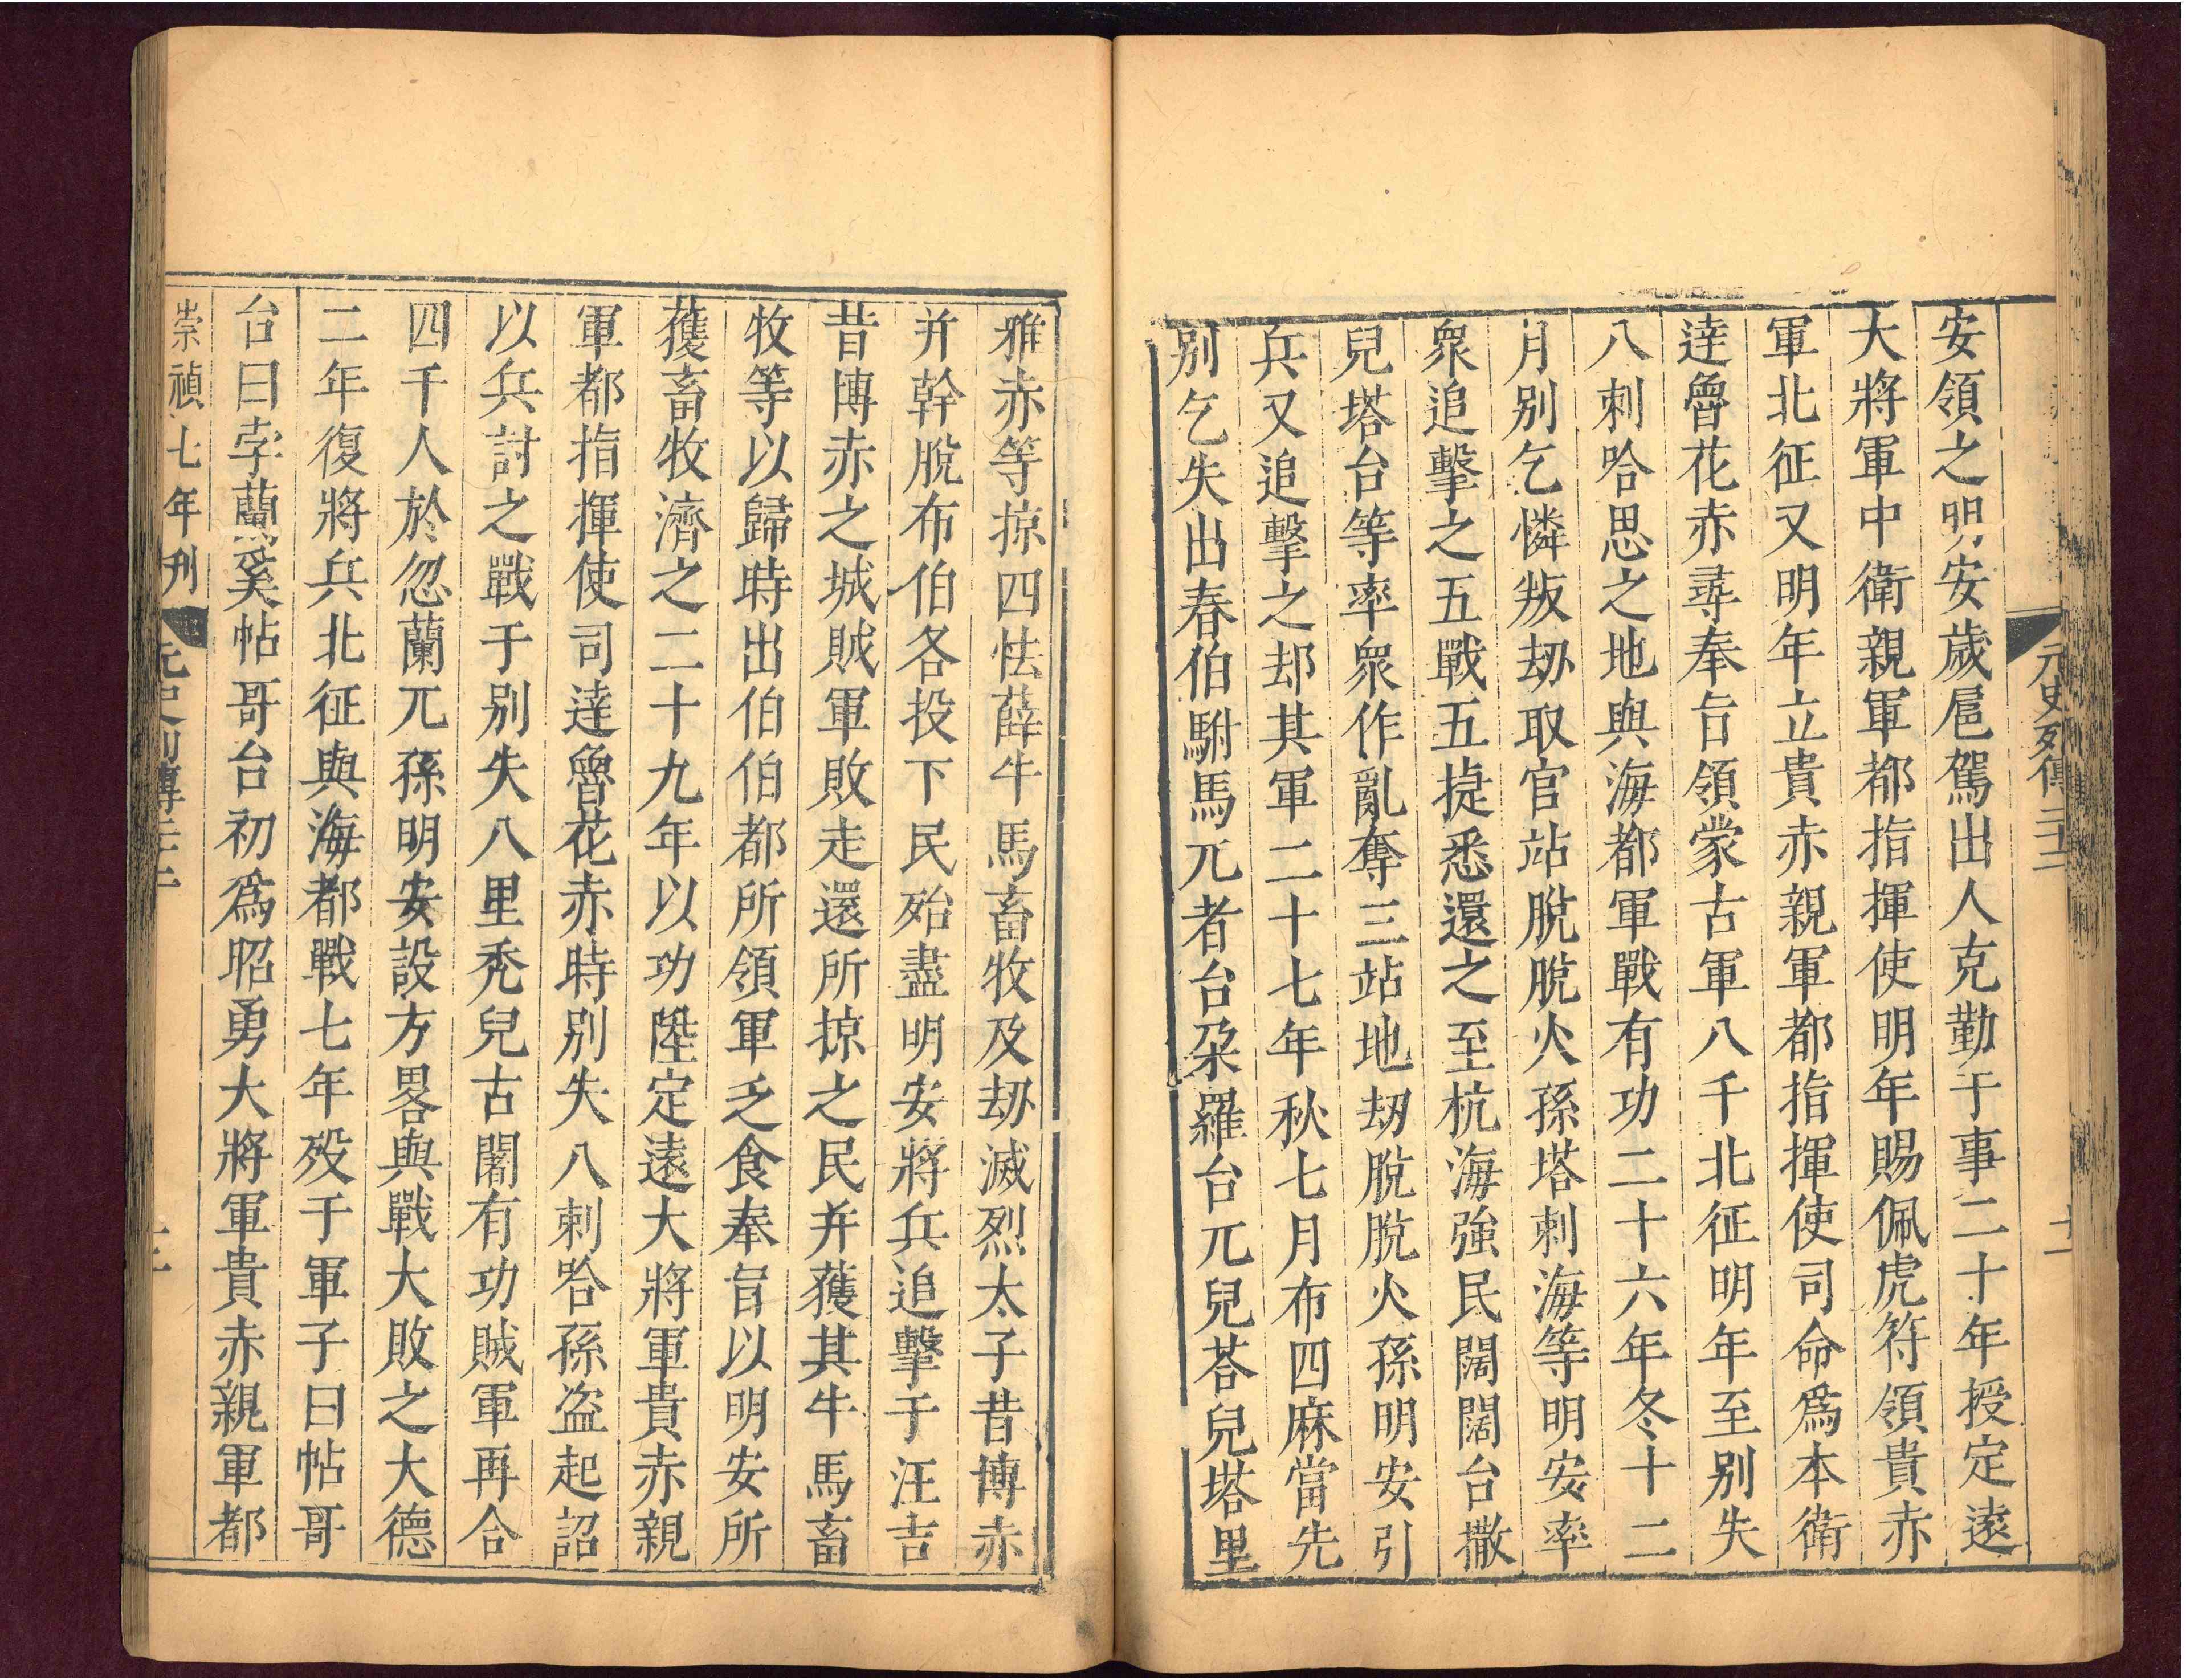 元史列傳二十二
安領之明安歲扈駕出人克勤于事二十年授定遠
大將軍中衛親軍都指揮使明年賜佩虎符領貴赤
軍北征又明年立貴赤親軍都指揮使司命爲本衛
達魯花赤尋奉旨領蒙古軍八千北征明年至别失
八剌哈思之地與海都軍戰有功二十六年冬十二
月别乞憐叛刼取官站脫脫火孫塔剌海等明安率
衆追擊之五戰五捷悉還之至杭海強民闊闊台撒
兒塔台等率衆作亂奪三站地刼脫脫火孫明安引
兵又追擊之却其軍二十七年秋七月布四麻當先
别乞失出春伯駙馬兀者台朶羅台兀兒荅兒塔里
雅赤等掠四怯薛牛馬畜牧及刼滅烈太子昔博赤
并斡脫布伯各投下民殆盡明安將兵追擊于汪吉
昔博赤之城賊軍敗走還所掠之民并獲其牛馬畜
牧等以歸時出伯伯都所領軍乏食奉旨以明安所
獲畜牧濟之二十九年以功陞定遠大將軍貴赤親
軍都指揮使司達魯花赤時别失八剌哈孫盗起詔
以兵討之戰于别失八里禿兒古闍有功賊軍再合
四千人於忽蘭兀孫明安設方畧與戰大敗之大德
二年復將兵北征與海都戰七年歿于軍子曰帖哥
台曰孛蘭奚帖哥台初爲昭勇大將軍貴赤親軍都
崇禎七年刋
元史列傳二十二